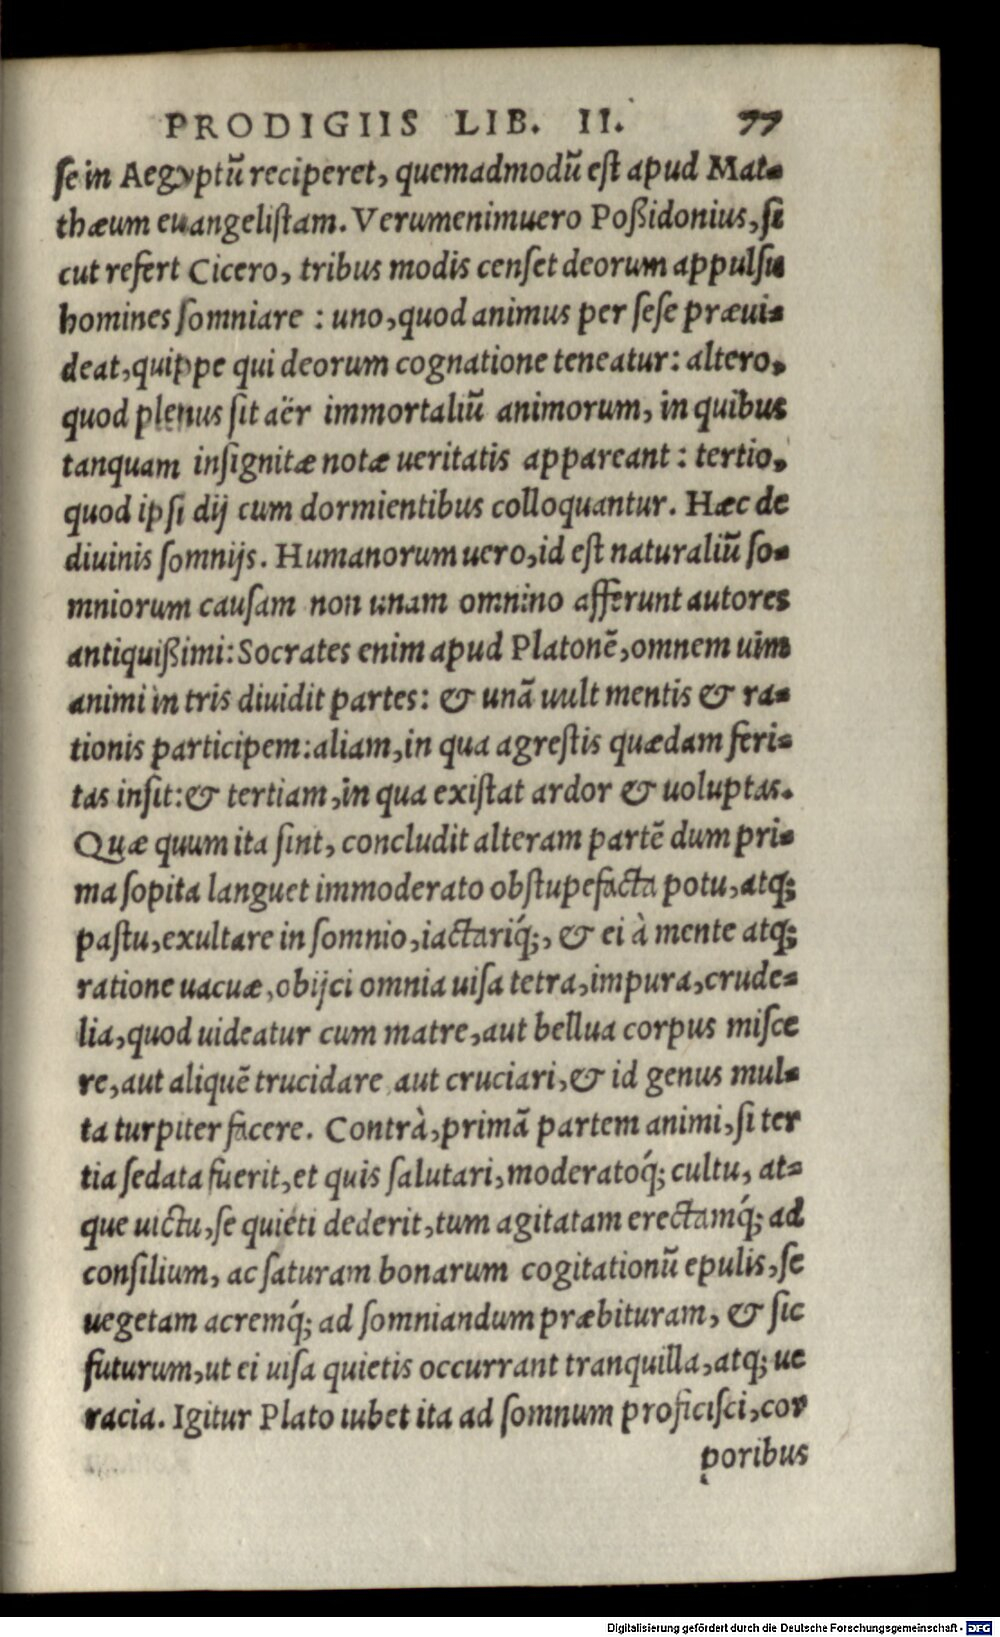 PRODIGIIS LIB. II. 77
se in Aegyptũ reciperet, quemadmodũ est apud Mat-
thæum euangelistam. Verumenimuero Poßidonius, si
cut refert Cicero, tribus modis censet deorum appulsu
homines somniare : uno, quod animus per sese præui-
deat, quippe qui deorum cognatione teneatur: altero,
quod plenus sit aër immortaliũ animorum, in quibus
tanquam insignitæ notæ ueritatis appareant : tertio,
quod ipsi dij cum dormientibus colloquantur. Hæc de
diuinis somnijs. Humanorum uero, id est naturaliũ so-
mniorum causam non unam omnino afferunt autores
antiquißimi: Socrates enim apud Platonẽ, omnem uim
animi in tris diuidit partes: & unã uult mentis & ra-
tionis participem: aliam, in qua agrestis quædam feri-
tas insit: & tertiam, in qua existat ardor & uoluptas.
Quæ quum ita sint, concludit alteram partẽ dum pri-
ma sopita languet immoderato obstupefacta potu, atq;
pastu, exultare in somnio, iactariq́;, & ei à mente atq;
ratione uacuæ, obijci omnia uisa tetra, impura, crude-
lia, quod uideatur cum matre, aut bellua corpus misce
re, aut aliquẽ trucidare aut cruciari, & id genus mul-
ta turpiter facere. Contrà, primã partem animi, si ter
tia sedata fuerit, et quis salutari, moderatoq́; cultu, at-
que uictu, se quiéti dederit, tum agitatam erectamq́; ad
consilium, ac saturam bonarum cogitationũ epulis, se
uegetam acremq́; ad somniandum præbituram, & sic
futurum, ut ei uisa quietis occurrant tranquilla, atq; ue
racia. Igitur Plato iubet ita ad somnum proficisci, cor
poribus
Digitalisierung gefördert durch die Deutsche Forschungsgemeinschaft - DFG